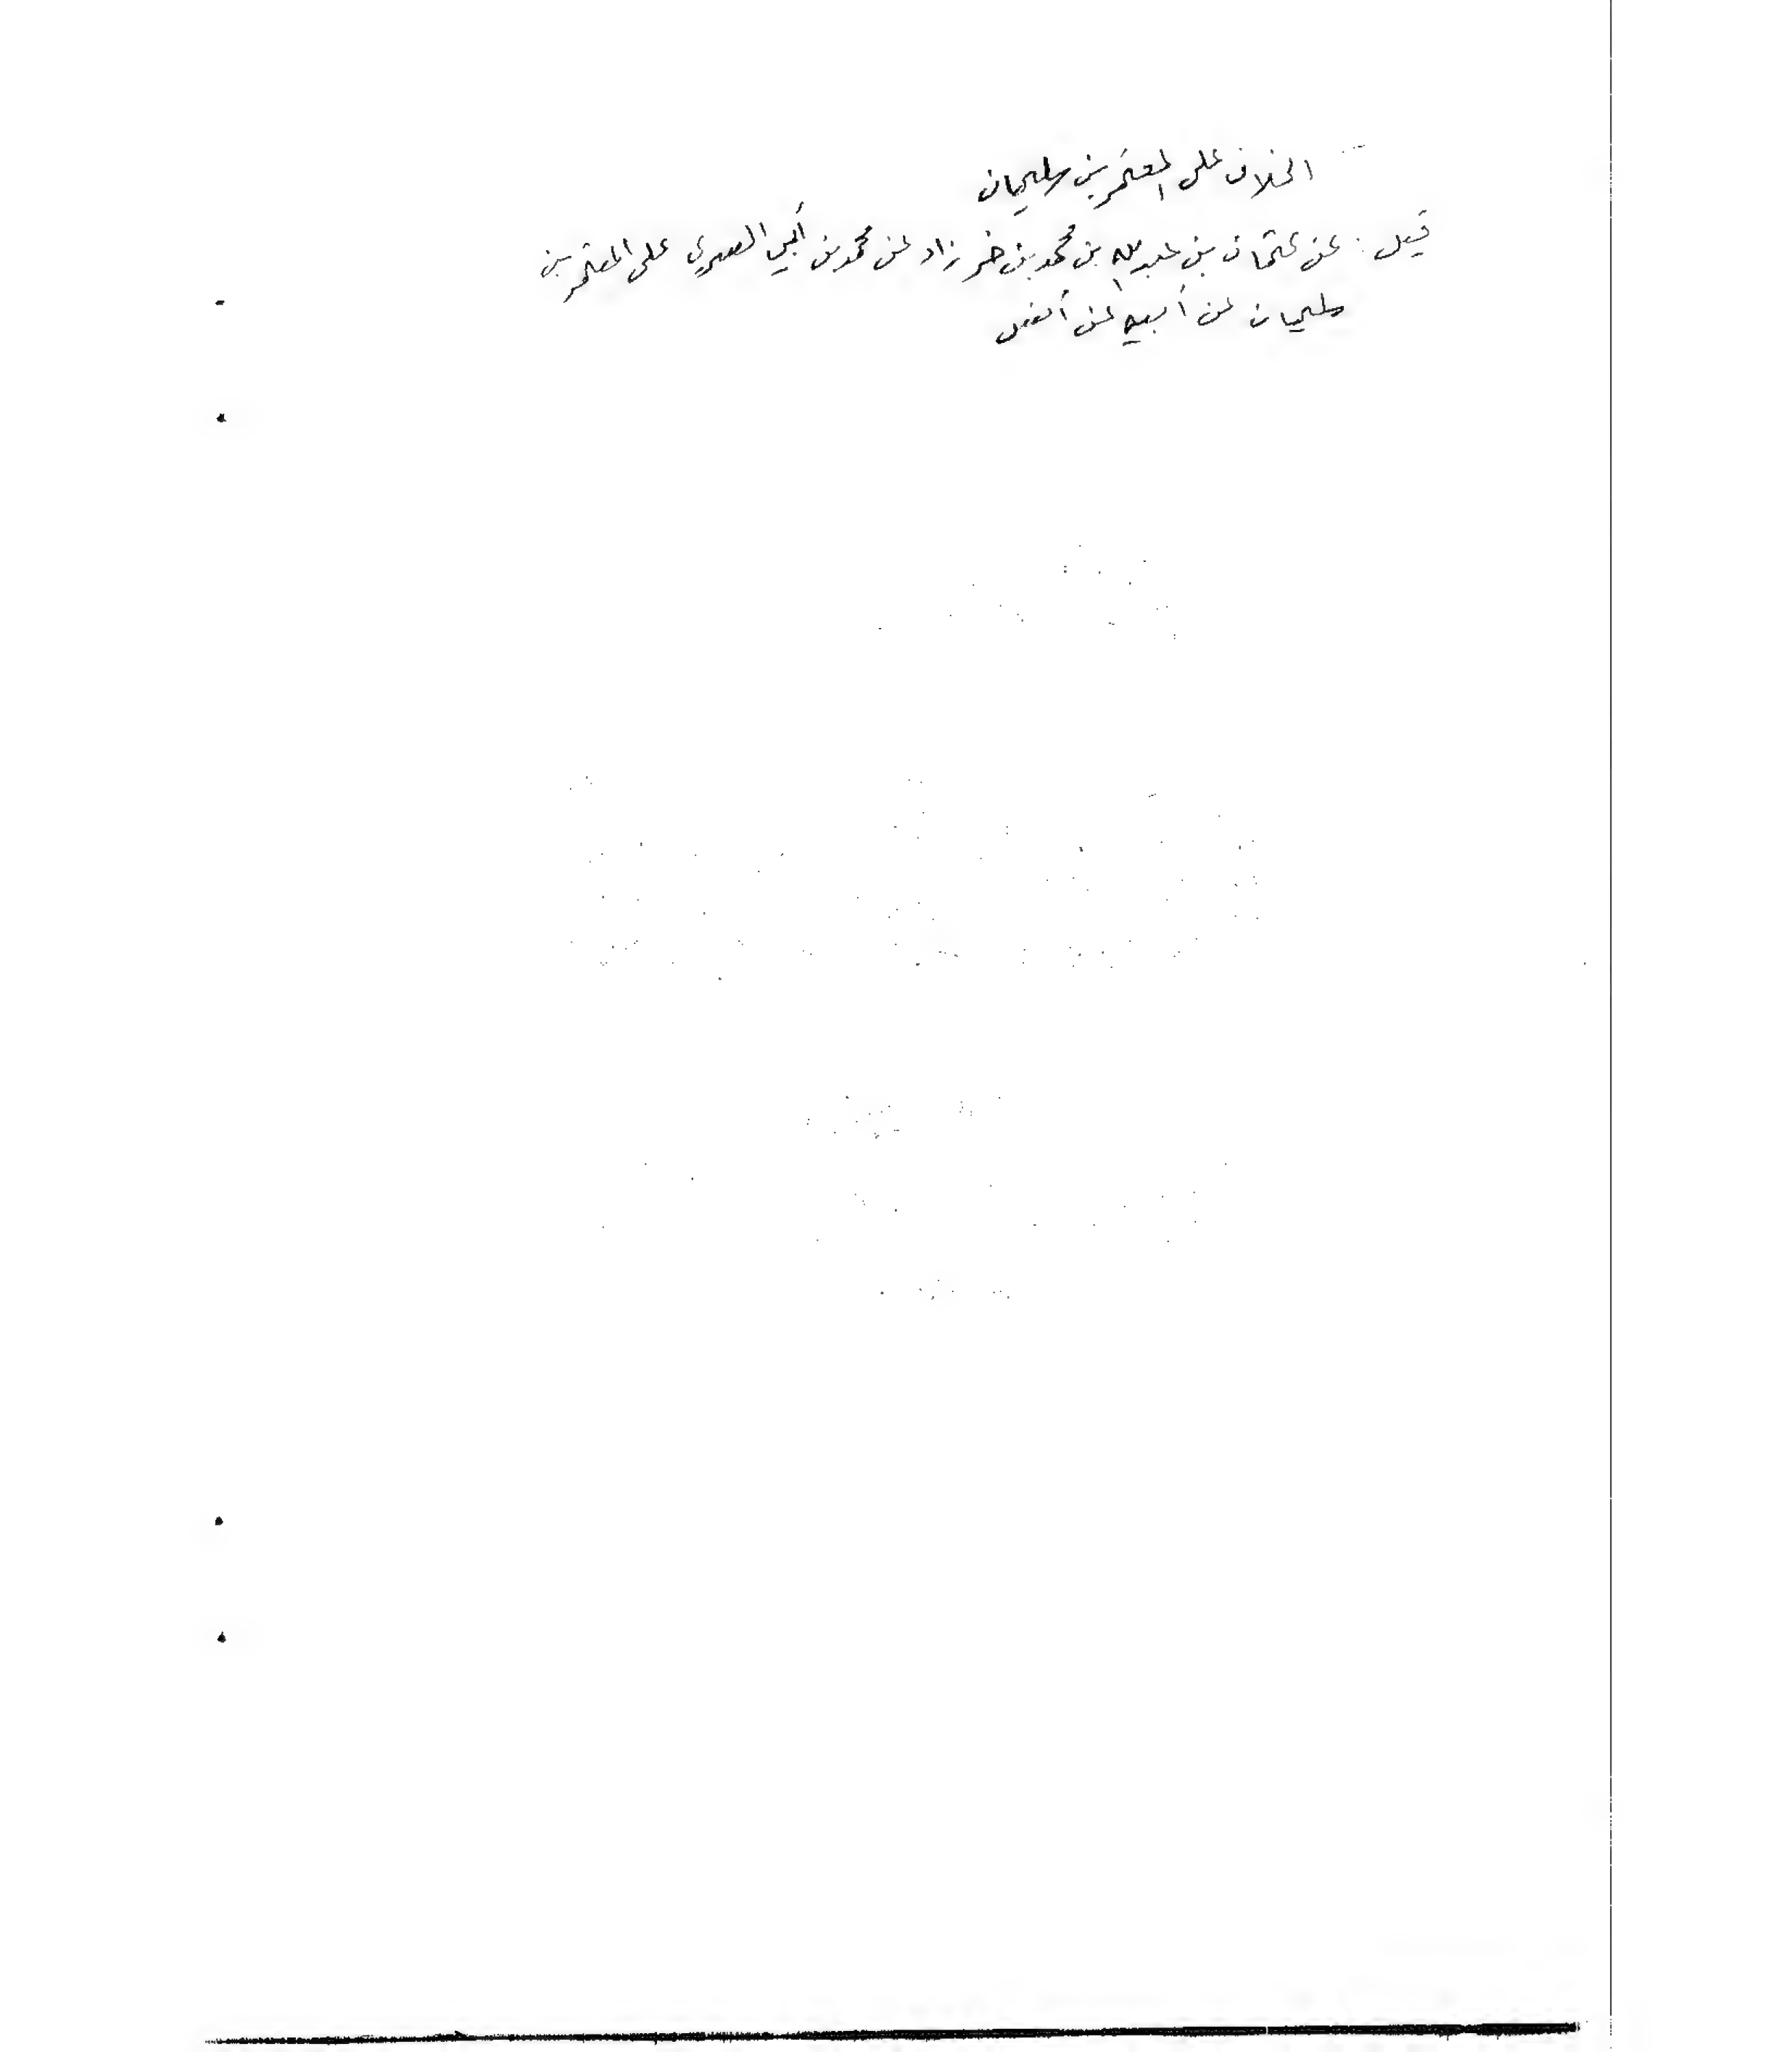 الخلاف على المعتمر بن سليمان
قيل : عن عثمان بن عبد الله بن محمد بن خرزاد عن محمد بن أبي السري على المعتمر بن
سليمان عن أبيه عن أنس